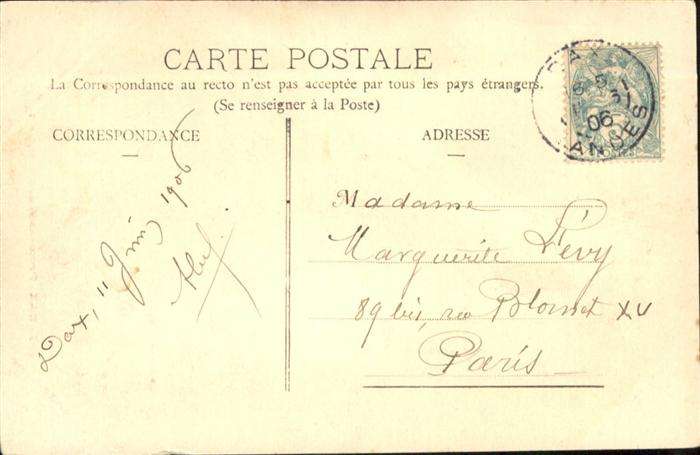 CARTE POSTALE
La Correspondance au recto n'est pas acceptée par tous les pays étrangers.
(Se renseigner à la Poste)
CORRESPONDANCE
Dax, 11 Juin 1906
ADRESSE
Madame
Marguerite Lévy
89 bis, rue Blomet XV
Paris
DAX
06
LANDES